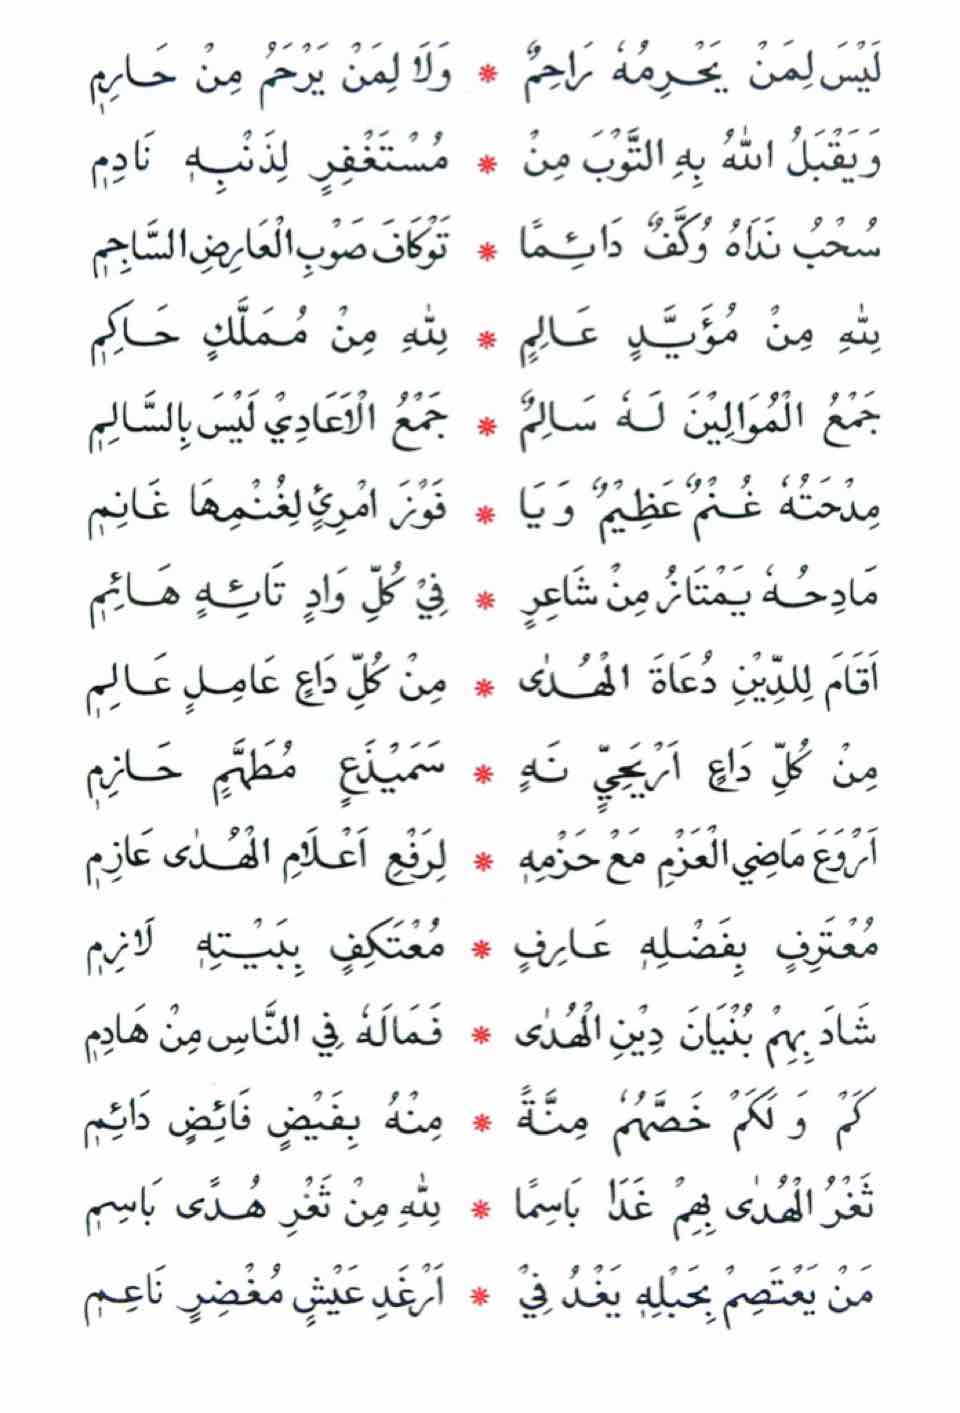 لَيْسَ لِمَنْ يَحْرِمُهٗ رَاحِمٌ * وَلَا لِمَنْ يَرْحَمُ مِنْ حَارِمِ
وَيَقْبَلُ اللهُ بِهِ التَّوْبَ مِنْ * مُسْتَغْفِرٍ لِذَنْبِهٖ نَادِمِ
سُحْبُ نَدَاهُ وُكَّفٌ دَائِمًا * تَوْكَافَ صَوْبِ الْعَارِضِ السَّاجِمِ
لِلهِ مِنْ مُؤَيَّدٍ عَالِمٍ * لِلهِ مِنْ مُمَلَّكٍ حَاكِمِ
جَمْعُ الْمُوَالِيْنَ لَهٗ سَالِمٌ * جَمْعُ الْاَعَادِيْ لَيْسَ بِالسَّالِمِ
مِدْحَتُهٗ غُنْمٌ عَظِيْمٌ وَيَا * فَوْزَ امْرِئٍ لِغُنْمِهَا غَانِمِ
مَادِحُهٗ يَمْتَازُ مِنْ شَاعِرٍ * فِيْ كُلِّ وَادٍ تَائِهٍ هَائِمِ
اَقَامَ لِلدِّيْنِ دُعَاةَ الْهُدٰى * مِنْ كُلِّ دَاعٍ عَامِلٍ عَالِمِ
مِنْ كُلِّ دَاعٍ اَرْيَحِيٍّ نَهٍ * سَمَيْذَعٍ مُطَهَّمٍ حَازِمِ
اَرْوَعَ مَاضِي الْعَزْمِ مَعْ حَزْمِهٖ * لِرَفْعِ اَعْلَامِ الْهُدٰى عَازِمِ
مُعْتَرِفٍ بِفَضْلِهٖ عَارِفٍ * مُعْتَكِفٍ بِبَيْتِهٖ لَازِمِ
شَادَ بِهِمْ بُنْيَانَ دِيْنِ الْهُدٰى * فَمَا لَهٗ فِي النَّاسِ مِنْ هَادِمِ
كَمْ وَلَكَمْ خَصَّهُمْ مِنَّةً * مِنْهُ بِفَيْضٍ فَائِضٍ دَائِمِ
ثَغْرُ الْهُدٰى بِهِمْ غَدَا بَاسِمًا * لِلهِ مِنْ ثَغْرِ هُدًى بَاسِمِ
مَنْ يَعْتَصِمْ بِحَبْلِهٖ يَغْدُ فِيْ * اَرْغَدِ عَيْشٍ مُغْضِرٍ نَاعِمِ